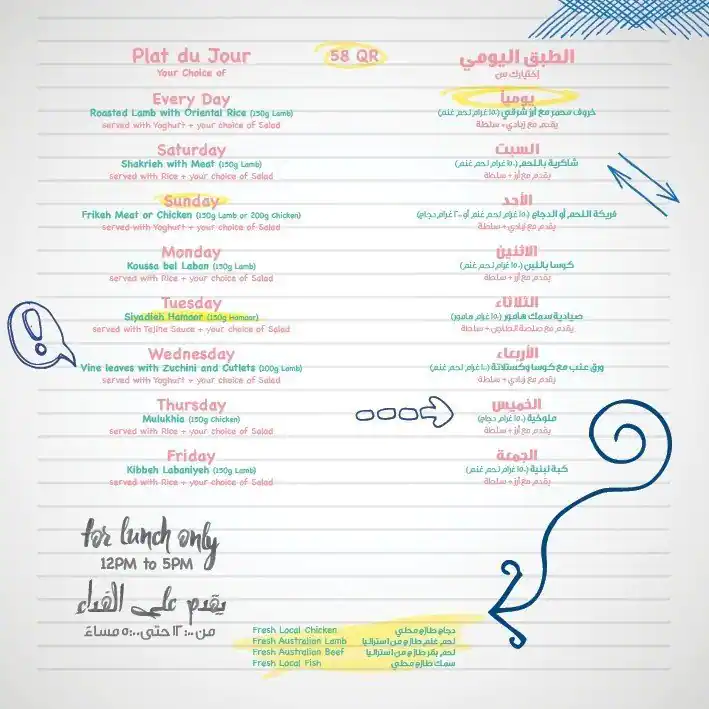 Plat du Jour
58 QR
الطبق اليومي
Your Choice of
إختيارك من
Every Day
يومياً
Roasted Lamb with Oriental Rice (150g Lamb)
خروف محمر مع أرز شرقي (١٥٠ غرام لحم غنم)
served with Yoghurt + your choice of Salad
يقدم مع زبادي + سلطة
Saturday
السبت
Shakrieh with Meat (150g Lamb)
شاكرية باللحم (١٥٠ غرام لحم غنم)
served with Rice + your choice of Salad
يقدم مع أرز + سلطة
Sunday
الأحد
Frikeh Meat or Chicken (150g Lamb or 200g Chicken)
فريكة اللحم أو الدجاج (١٥٠ غرام لحم غنم أو ٢٠٠ غرام دجاج)
served with Yoghurt + your choice of Salad
يقدم مع زبادي + سلطة
Monday
الاثنين
Koussa bel Laban (150g Lamb)
كوسا باللبن (١٥٠ غرام لحم غنم)
served with Rice + your choice of Salad
يقدم مع أرز + سلطة
Tuesday
الثلاثاء
Siyadieh Hamoor (150g Hamoor)
صيادية سمك هامور (١٥٠ غرام هامور)
served with Tajine Sauce + your choice of Salad
يقدم مع صلصة الطاجن + سلطة
Wednesday
الأربعاء
Vine leaves with Zuchini and Cutlets (100g Lamb)
ورق عنب مع كوسا وكستلاتة (١٠٠ غرام لحم غنم)
served with Yoghurt + your choice of Salad
يقدم مع زبادي + سلطة
Thursday
الخميس
Mulukhia (150g Chicken)
ملوخية (١٥٠ غرام دجاج)
served with Rice + your choice of Salad
يقدم مع أرز + سلطة
Friday
الجمعة
Kibbeh Labaniyeh (150g Lamb)
كبة لبنية (١٥٠ غرام لحم غنم)
served with Rice + your choice of Salad
يقدم مع أرز + سلطة
for lunch only
12PM to 5PM
يقدم على الغداء
من ١٢:٠٠ حتى ٥:٠٠ مساءً
Fresh Local Chicken
دجاج طازج محلي
Fresh Australian Lamb
لحم غنم طازج من استراليا
Fresh Australian Beef
لحم بقر طازج من استراليا
Fresh Local Fish
سمك طازج محلي